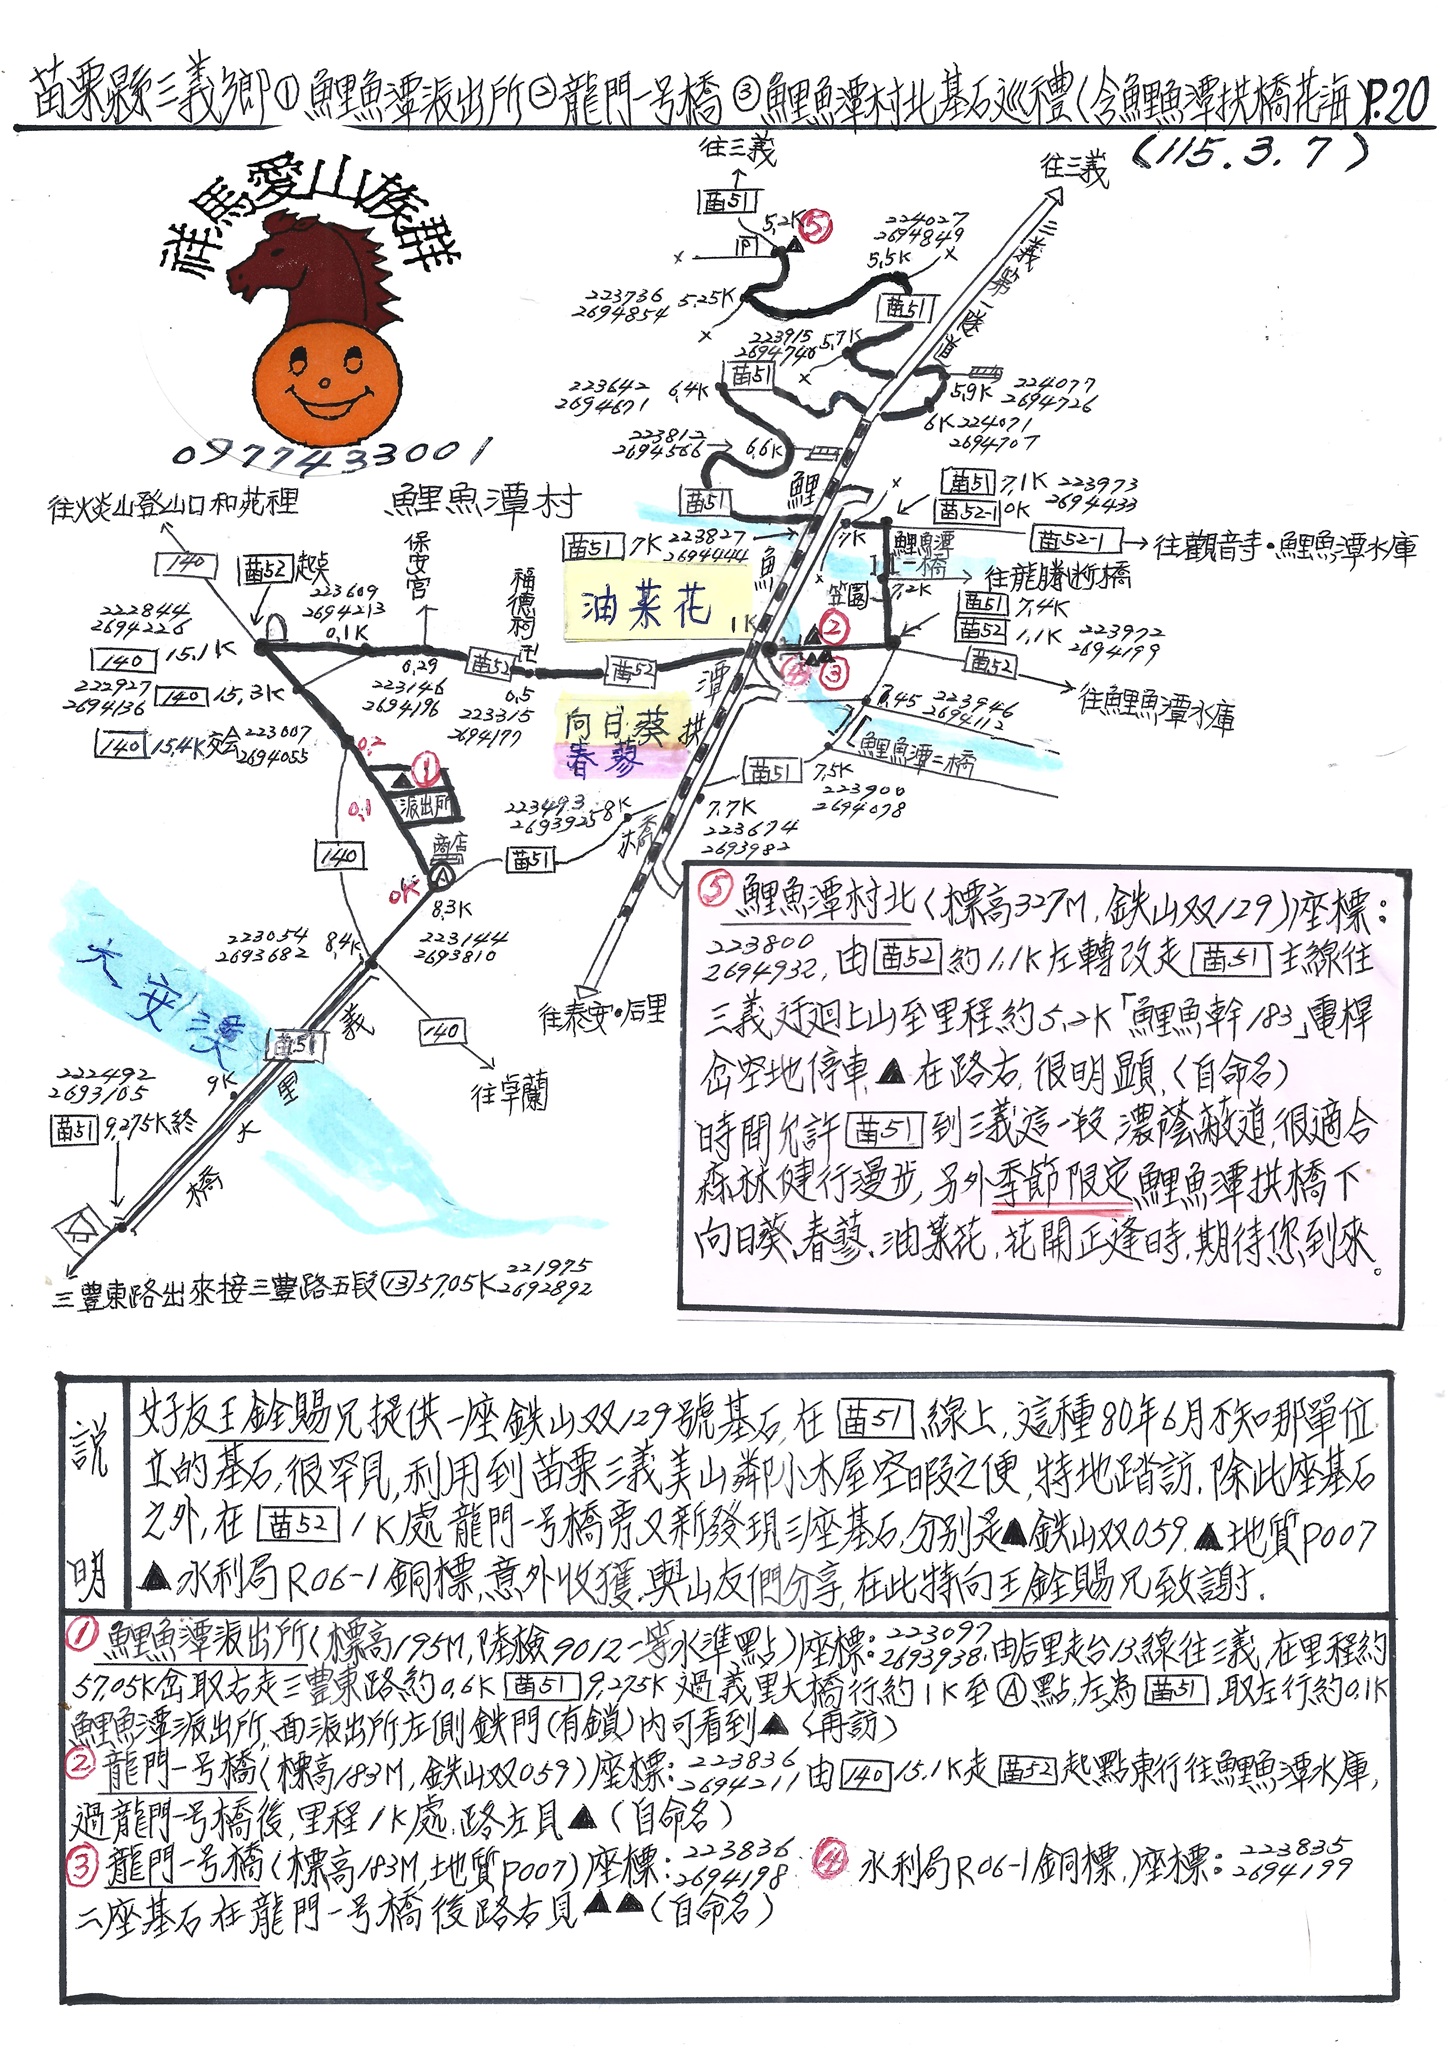 苗栗縣三義鄉①鯉魚潭派出所②龍門一号橋③鯉魚潭村北基石巡禮(含鯉魚潭拱橋花海)P.20
(115.3.7)
祥馬愛山族群
0977433001
往三義
苗51
5.2K
⑤
往三義
三義第一隧道
224027
2694849
5.5K
223736
2694854
5.25K
苗51
223915
2694740
5.7K
苗51
223642
2694671
6.4K
5.9K
224077
2694726
6K
224071
2694707
223812
2694566
6.6K
苗51
苗51 7.1K 223973
苗52-1 0K 2694433
往火炎山登山口和苑裡
鯉魚潭村
140
苗52 起点
保安宮
福德祠
卍
苗51 7K 223827
2694444
7K
鯉魚潭一橋
苗52-1
往觀音寺・鯉魚潭水庫
往龍勝断橋
油菜花
笠園
7.2K
苗51 7.4K
苗52 1.1K
223972
2694199
222844
2694226
140 15.1K
223609
2694213
0.1K
0.29
223146
2694196
苗52
0.5
223315
2694177
苗52
1K
②
④
③
苗52
往鯉魚潭水庫
222927
2694136
140 15.3K
140 15.4K交会
223007
2694055
向日葵
春蓼
鯉魚潭拱橋
7.45
223946
2694112
鯉魚潭二橋
苗51
7.5K
223900
2694078
0.2
①
派出所
0.1
140
商店
Ⓐ
0K
8.3K
223144
2693810
苗51
223493
2693925
8K
7.7K
223674
2693982
223054
2693682
8.4K
大安溪
苗51
義里大橋
140
往卓蘭
往泰安・后里
9K
222492
2693105
苗51 9.275K終
三豐東路出來接三豐路五段⑬57.05K
221975
2692892
⑤鯉魚潭村北(標高327M,鉄山双129)座標:
223800
2694932,由苗52約1.1K左轉改走苗51主線往
三義迂迴上山至里程約5.2K「鯉魚幹183」電桿
岔空地停車,▲在路右,很明顯,(自命名)
時間允許苗51到三義這一段濃蔭蔽道,很適合
森林健行漫步,另外季節限定鯉魚潭拱橋下
向日葵、春蓼、油菜花,花開正逢時,期待您到來。
說明
好友王金賜兄提供一座鉄山双129號基石,在苗51線上,這種80年6月不知那單位
立的基石,很罕見,利用到苗栗三義美山鄰小木屋空暇之便,特地踏訪,除此座基石
之外,在苗52 1K處龍門一号橋旁又新發現三座基石,分別是▲鉄山双059,▲地質P007
▲水利局R06-1銅標,意外收獲,與山友們分享,在此特向王金賜兄致謝.
①鯉魚潭派出所(標高195M,陸檢9012一等水準點)座標:223097
2693938.由后里走台13線往三義,在里程約
57.05K岔取右走三豐東路約0.6K苗51 9.275K過義里大橋行約1K至Ⓐ點,左為苗51,取左行約0.1K
鯉魚潭派出所,面派出所左側鉄門(有鎖)內可看到▲(再訪)
②龍門一号橋(標高183M,鉄山双059)座標:223836
2694211由140 15.1K走苗52起點東行往鯉魚潭水庫,
過龍門一号橋後,里程1K處,路左見▲(自命名)
③龍門一号橋(標高183M,地質P007)座標:223836
2694198
④水利局R06-1銅標,座標:223835
2694199
二座基石在龍門一号橋後路右見▲▲(自命名)